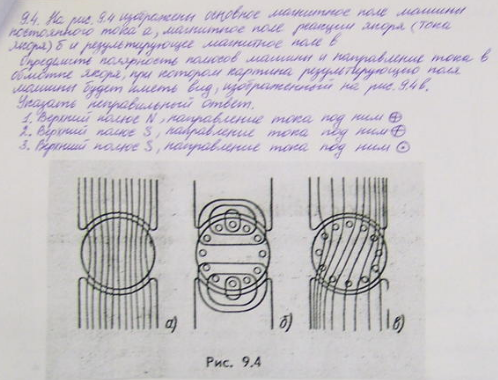 9.4. На рис. 9.4 изображены основное магнитное поле машины
постоянного тока а, магнитное поле реакции якоря (тока
якоря) б и результирующее магнитное поле в
Определить полярность полюсов машины и направление тока в
обмотке якоря, при котором картина результирующего поля
машины будет иметь вид, изображенный на рис. 9.4в.
Указать неправильный ответ.
1. Верхний полюс N, направление тока под ним ⊕
2. Верхний полюс S, направление тока под ним ⊕
3. Верхний полюс S, направление тока под ним ⊙
а) б) в)
Рис. 9.4